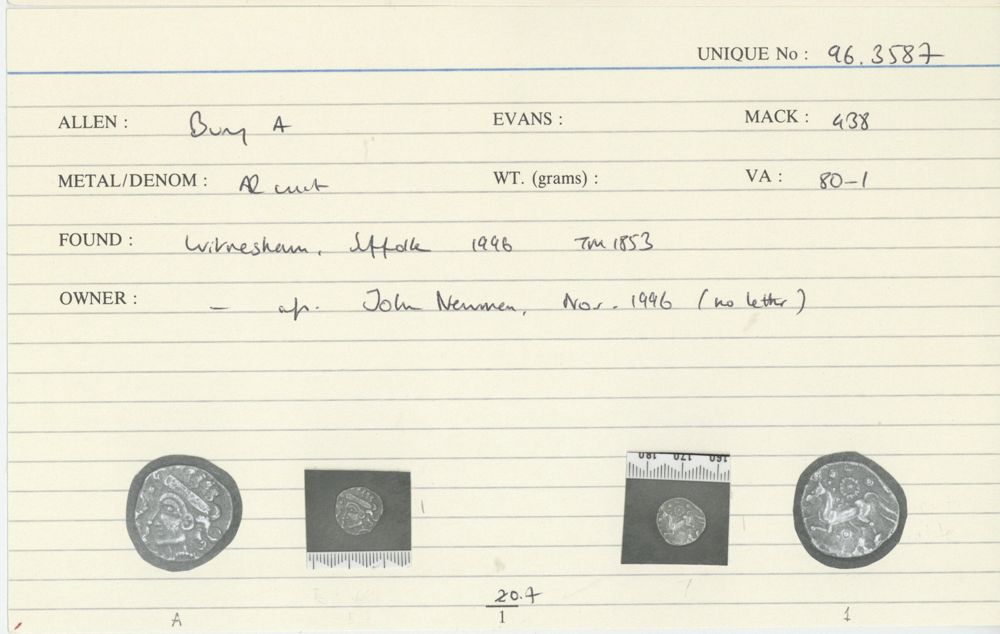 UNIQUE No : 96.3587
ALLEN : Bury A EVANS : MACK : 438
METAL/DENOM : AR unit WT. (grams) : VA : 80-1
FOUND : Witnesham, Suffolk 1996 TM 1853
OWNER : - ap. John Newman, Nov. 1996 (no letter)
180 170 160
20.7
A 1 1